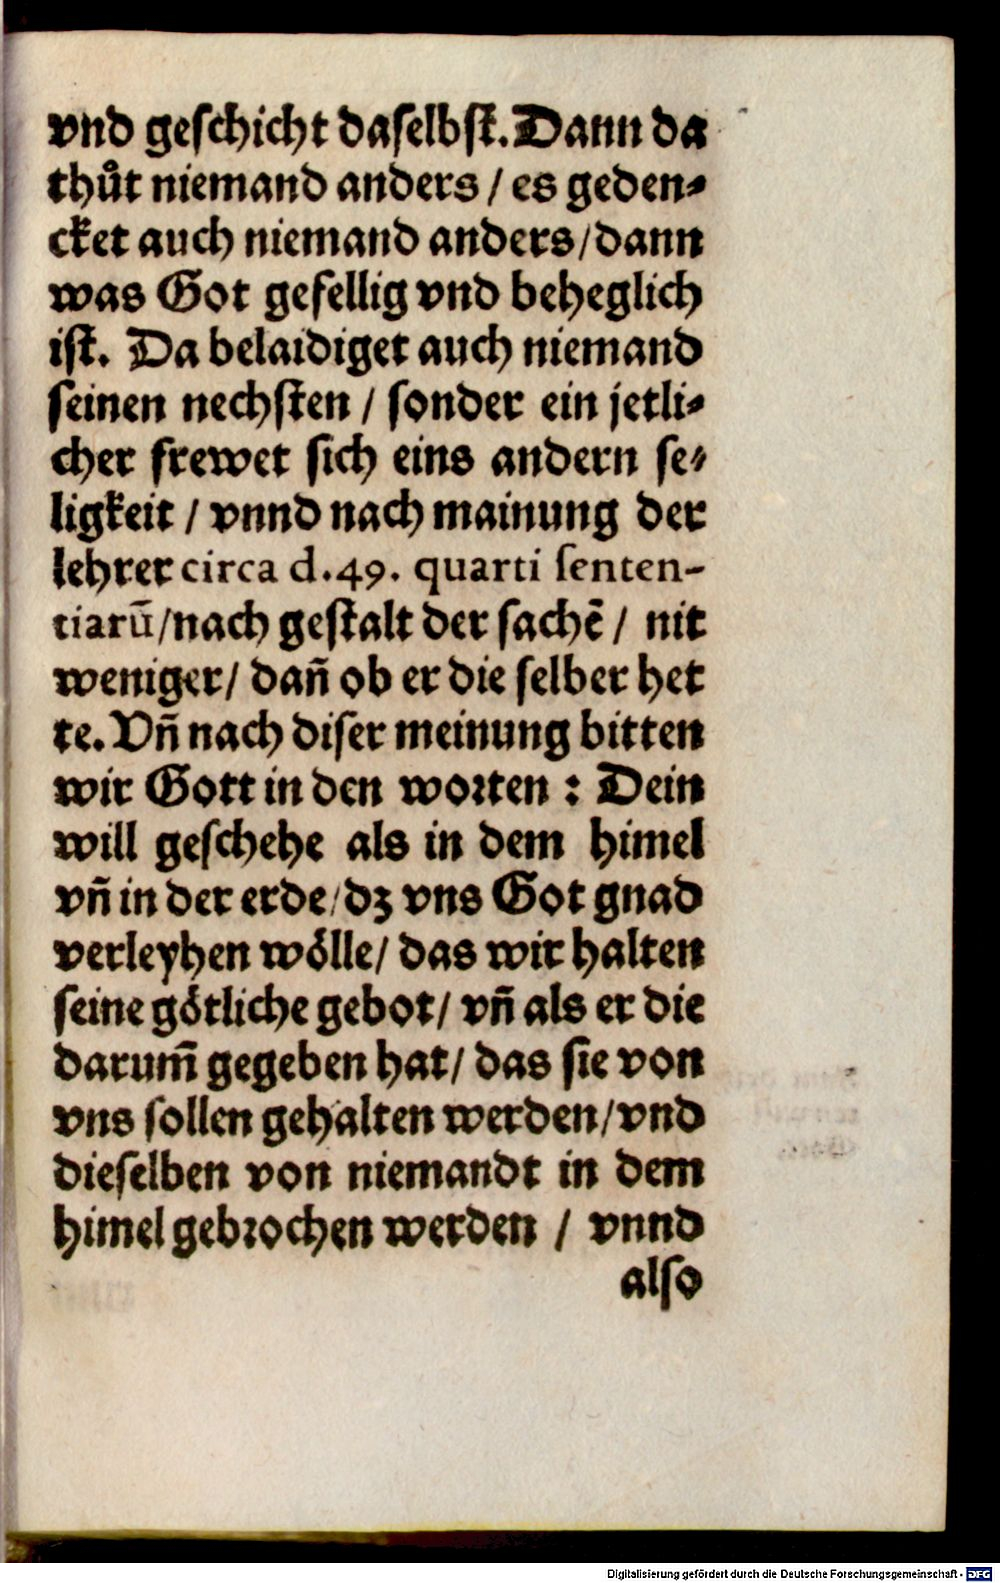 vnd geschicht daselbst. Dann da
thůt niemand anders / es geden-
cket auch niemand anders / dann
was Got gefellig vnd beheglich
ist. Da belaidiget auch niemand
seinen nechsten / sonder ein jetli-
cher frewet sich eins andern se-
ligkeit / vnnd nach mainung der
lehrer circa d.49. quarti senten-
tiarū / nach gestalt der sachē / nit
weniger / dañ ob er die selber het
te. Vñ nach diser meinung bitten
wir Gott in den worten : Dein
will geschehe als in dem himel
vñ in der erde / dz vns Got gnad
verleyhen wölle / das wir halten
seine götliche gebot / vñ als er die
darum̃ gegeben hat / das sie von
vns sollen gehalten werden / vnd
dieselben von niemandt in dem
himel gebrochen werden / vnnd
also
Digitalisierung gefördert durch die Deutsche Forschungsgemeinschaft - DFG